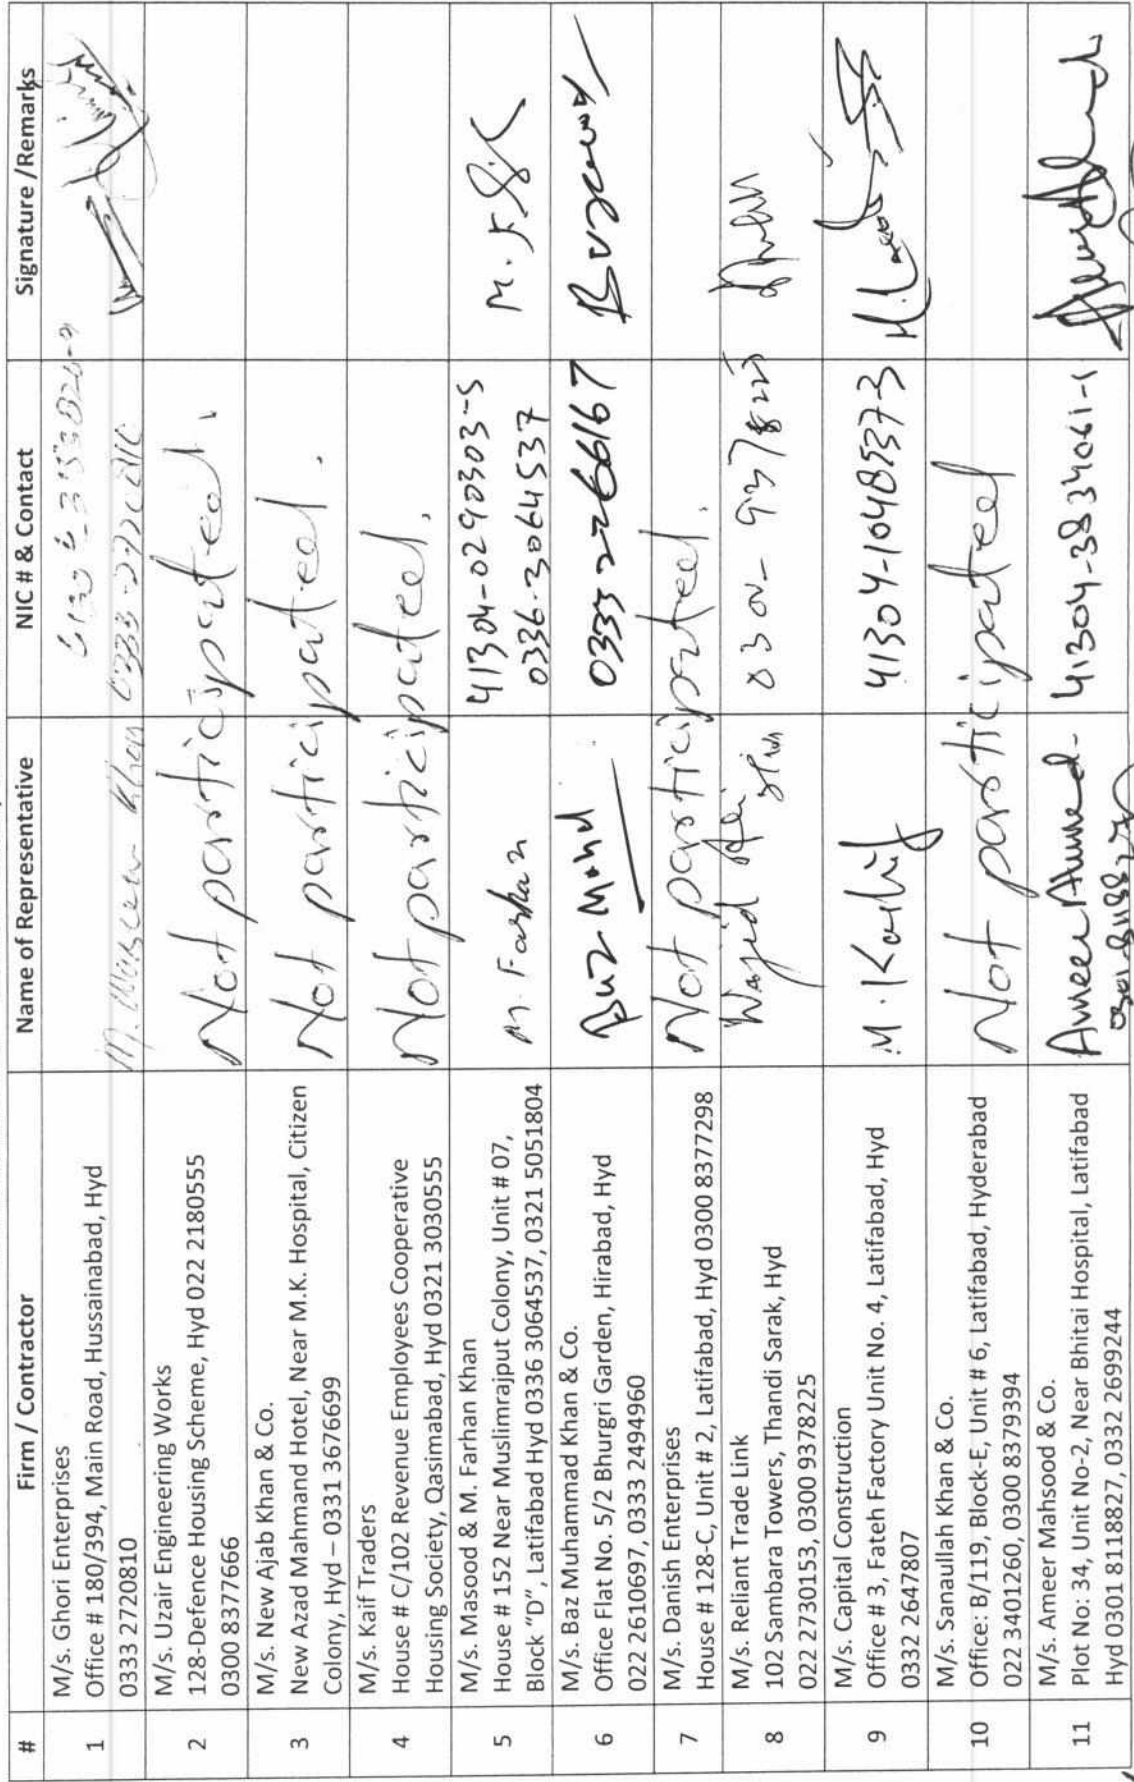 # Firm / Contractor Name of Representative NIC # & Contact Signature /Remarks
1
M/s. Ghori Enterprises
Office # 180/394, Main Road, Hussainabad, Hyd
0333 2720810
M. Khan
2
M/s. Uzair Engineering Works
128-Defence Housing Scheme, Hyd 022 2180555
0300 8377666
Not participated.
3
M/s. New Ajab Khan & Co.
New Azad Mahmand Hotel, Near M.K. Hospital, Citizen
Colony, Hyd – 0331 3676699
Not participated.
4
M/s. Kaif Traders
House # C/102 Revenue Employees Cooperative
Housing Society, Qasimabad, Hyd 0321 3030555
Not participated.
5
M/s. Masood & M. Farhan Khan
House # 152 Near Muslimrajput Colony, Unit # 07,
Block "D", Latifabad Hyd 0336 3064537, 0321 5051804
M. Farhan
41304-0290303-5
0336-3064537
6
M/s. Baz Muhammad Khan & Co.
Office Flat No. 5/2 Bhurgri Garden, Hirabad, Hyd
022 2610697, 0333 2494960
Buz Mohd
0333 2266167
7
M/s. Danish Enterprises
House # 128-C, Unit # 2, Latifabad, Hyd 0300 8377298
Not participated.
8
M/s. Reliant Trade Link
102 Sambara Towers, Thandi Sarak, Hyd
022 2730153, 0300 9378225
Wajid Ali
9
M/s. Capital Construction
Office # 3, Fateh Factory Unit No. 4, Latifabad, Hyd
0332 2647807
M. Kashif
41304-1048537-3
10
M/s. Sanaullah Khan & Co.
Office: B/119, Block-E, Unit # 6, Latifabad, Hyderabad
022 3401260, 0300 8379394
Not participated
11
M/s. Ameer Mahsood & Co.
Plot No: 34, Unit No-2, Near Bhitai Hospital, Latifabad
Hyd 0301 8118827, 0332 2699244
Ameer Ahmed
41304-3834061-1